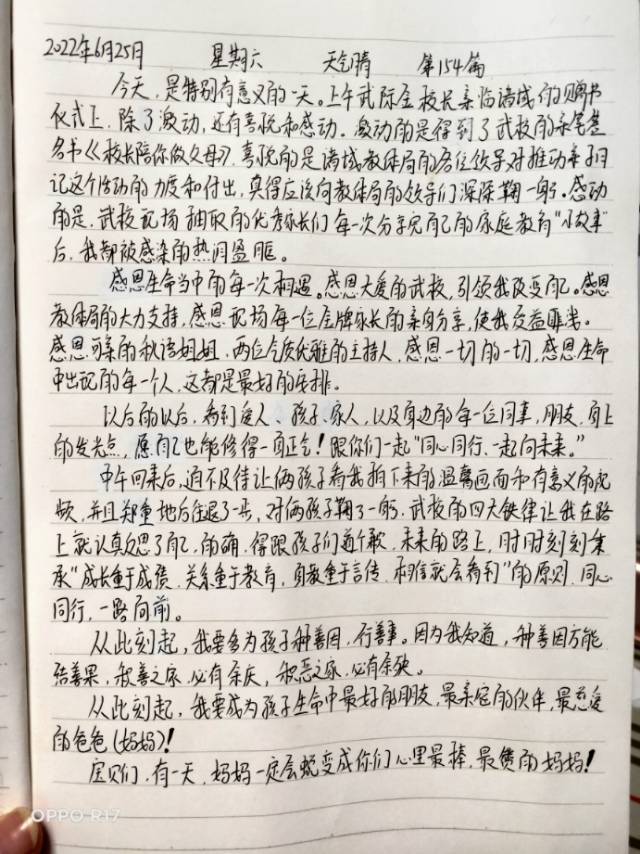 2022年6月25日 星期六 天气晴 第154篇
今天,是特别有意义的一天。上午武际金校长亲临诸城的赠书
仪式上,除了激动,还有喜悦和感动。激动的是得到了武校的亲笔签
名书《校长陪你做父母》,喜悦的是诸城教体局的各位领导对推动亲子日
记这个活动的力度和付出,真得应该向教体局的领导们深深鞠一躬。感动
的是,武校现场抽取的优秀家长们每一次分享完自己的家庭教育“小故事”
后,我都被感染的热泪盈眶。
感恩生命当中的每一次相遇。感恩大爱的武校,引领我改变自己。感恩
教体局的大力支持,感恩现场每一位金牌家长的亲身分享,使我受益匪浅。
感恩可亲的秋语姐姐,两位气质优雅的主持人,感恩一切的一切,感恩生命
中出现的每一个人,这都是最好的安排。
以后的以后,看到爱人、孩子、家人,以及身边的每一位同事,朋友,身上
的发光点,愿自己也能修得一身正气!跟你们一起“同心同行,一起向未来。”
中午回来后,迫不及待让俩孩子看我拍下来的温馨画面和有意义的视
频,并且郑重地后往退了一步,对俩孩子鞠了一躬。武校的四大铁律让我在路
上就认真反思了自己,的确,得跟孩子们道个歉,未来的路上,时时刻刻秉
承“成长重于成绩,关系重于教育,身教重于言传,相信就会看到”的原则,同心
同行,一路向前。
从此刻起,我要多为孩子种善因,行善事。因为我知道,种善因方能
结善果,积善之家,必有余庆,积恶之家,必有余殃。
从此刻起,我要成为孩子生命中最好的朋友,最亲密的伙伴,最慈爱
的爸爸(妈妈)!
宝贝们,有一天,妈妈一定会蜕变成你们心里最棒,最赞的妈妈!
OPPO R17